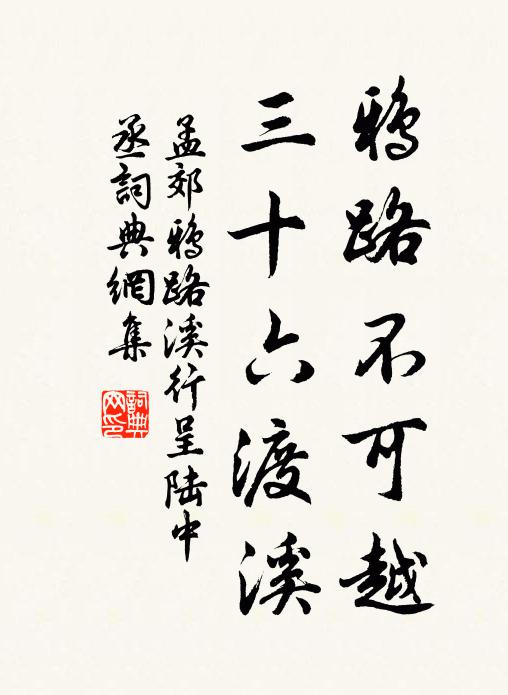 鴉路不可越
三十六渡溪
孟郊鴉路溪行呈陆中
丞詞典網集
詞典
网印